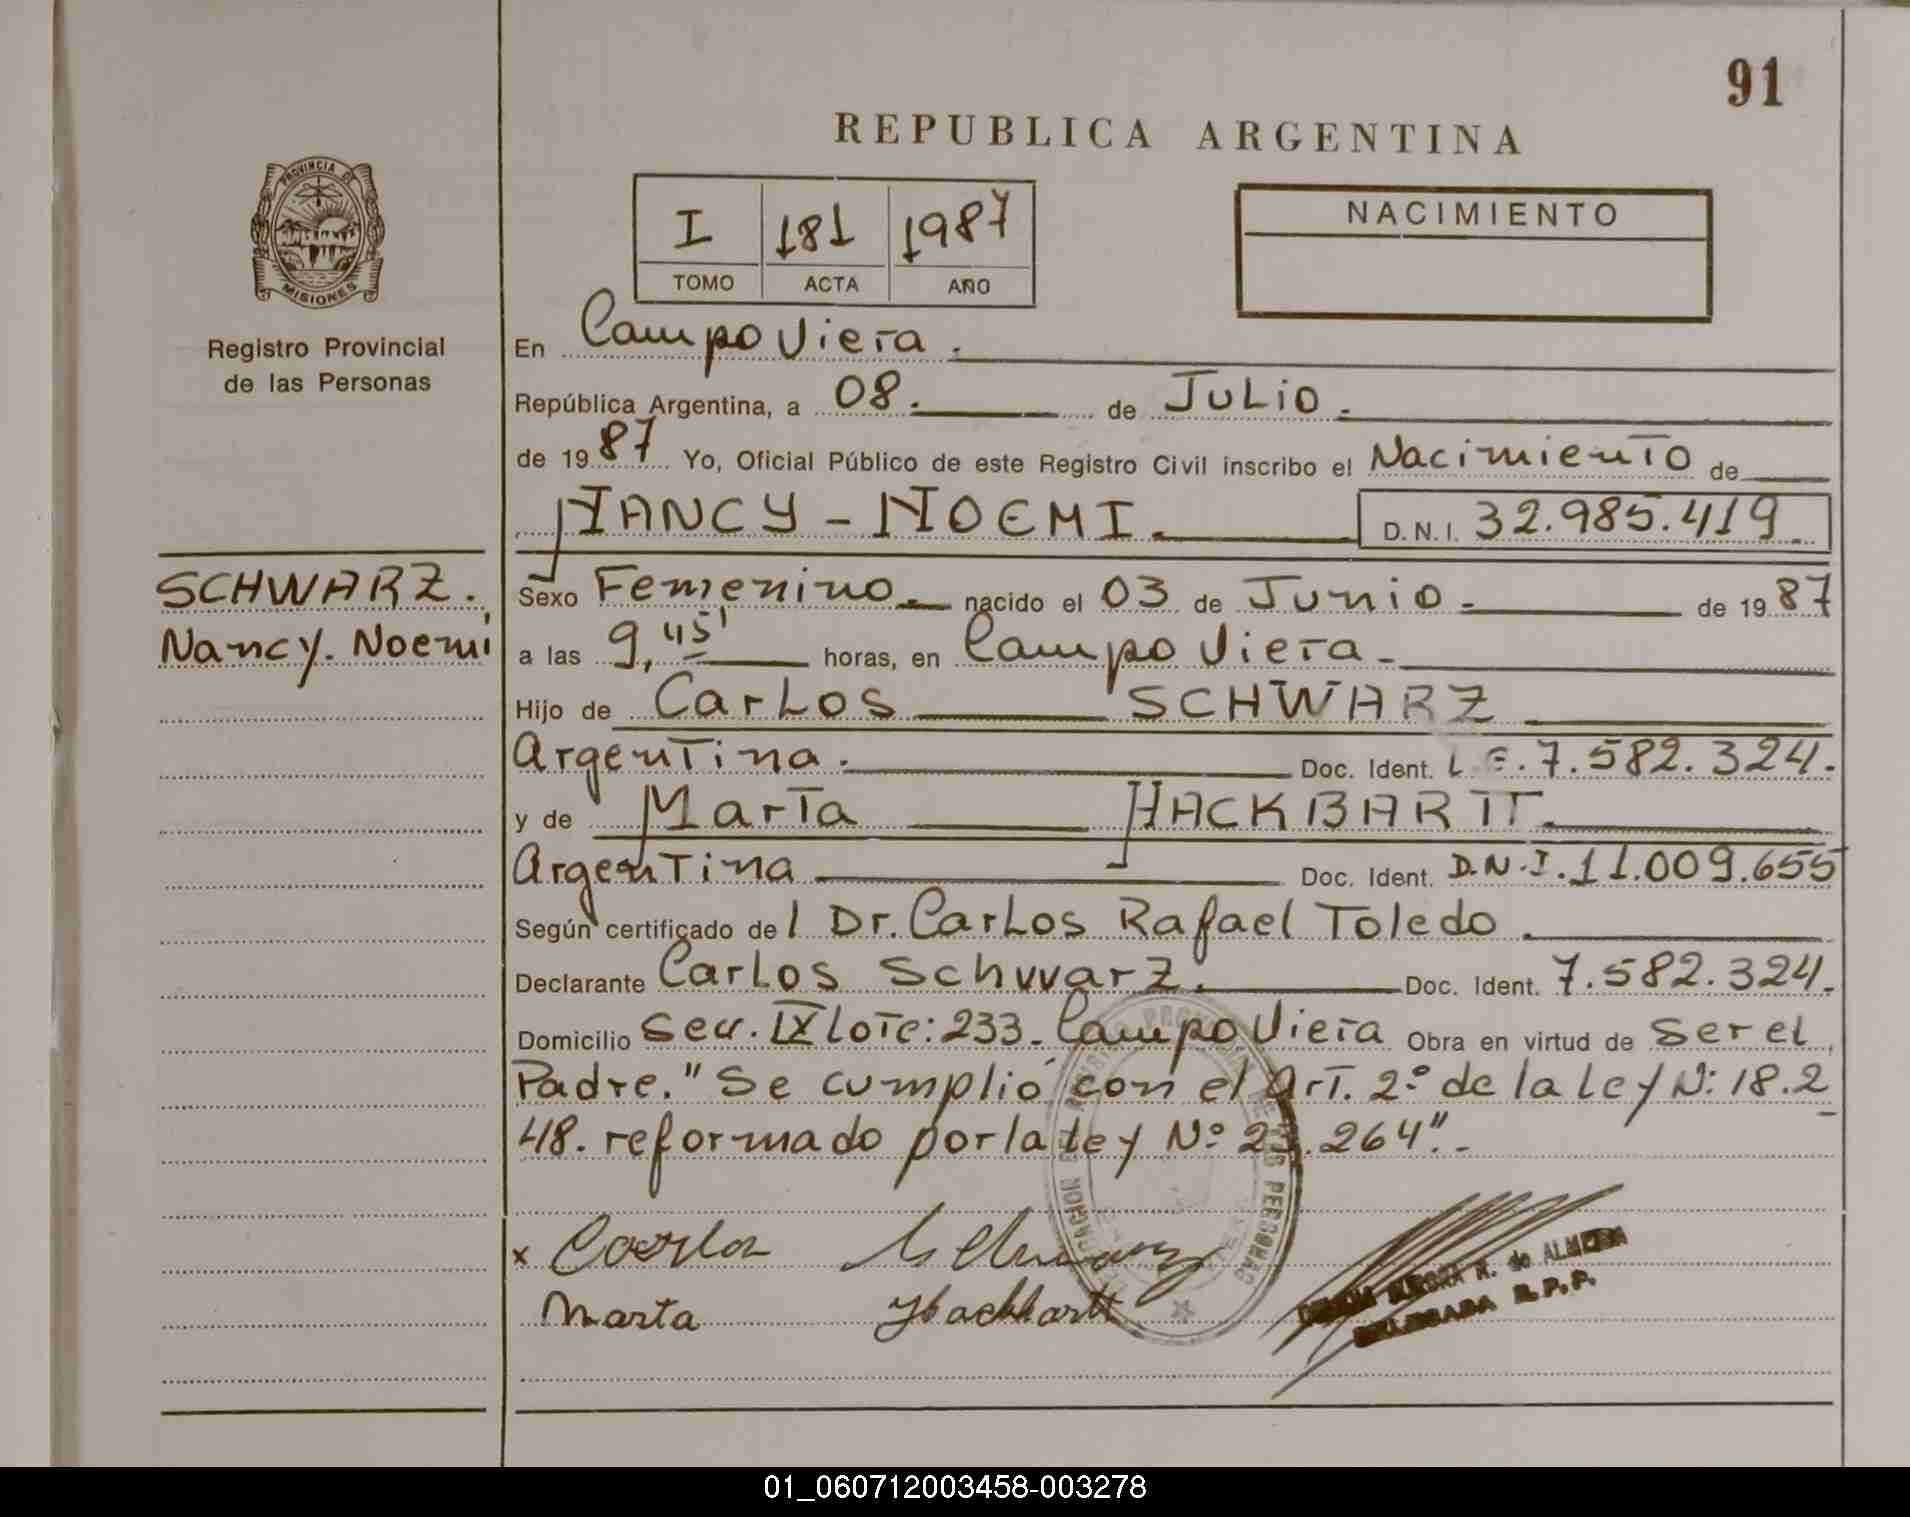 91
REPUBLICA ARGENTINA
I 181 1987
TOMO ACTA AÑO
NACIMIENTO
PROVINCIA DE
MISIONES
Registro Provincial
de las Personas
En Campo Viera.
República Argentina, a 08. de JULIO.
de 1987 Yo, Oficial Público de este Registro Civil inscribo el Nacimiento de
NANCY - NOEMI. D.N.I. 32.985.419
SCHWARZ.
Nancy. Noemi
Sexo Femenino. nacido el 03 de Junio. de 1987
a las 9,45' horas, en Campo Viera.
Hijo de Carlos SCHWARZ
Argentina. Doc. Ident. L.E. 7.582.324.
y de Marta HACKBARTT.
Argentina Doc. Ident. D.N.I. 11.009.655
Según certificado del Dr. Carlos Rafael Toledo.
Declarante Carlos Schwarz. Doc. Ident. 7.582.324.
Domicilio Secc. IX Lote: 233. Campo Viera Obra en virtud de Ser el
Padre. "Se cumplió con el Art. 2º de la Ley N: 18.2
48. reformado por la Ley Nº 23.264".-
x Carlos Schwarz
Marta Hackbartt
de ALMEIDA
DELEGADA R.P.P.
01_060712003458-003278